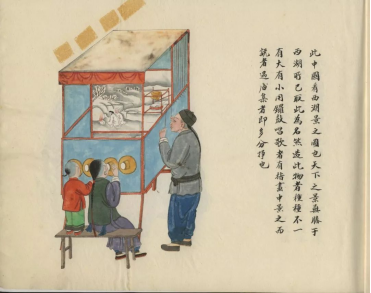 此中國看西湖景之圖也天下之景無勝于
西湖前已取此為名然造此物者種種不一
有大有小用鑼鼓唱歌者有指畫中景之為
說者過廟集者即多分排也